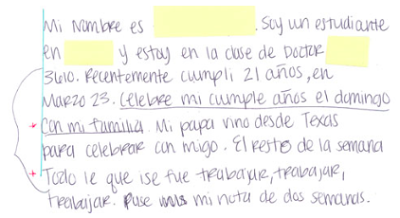 Mi Nombre es . Soy un estudiante
en y estoy en la clase de Doctor
3610. Recentemente cumpli 21 años, en
Marzo 23. Celebre mi cumple años el domingo
con mi familia. Mi papa vino desde Texas
para celebrar con migo. El resto de la semana
Todo le que ise fue trabajar, trabajar,
trabajar. Puse mi nota de dos semanas.